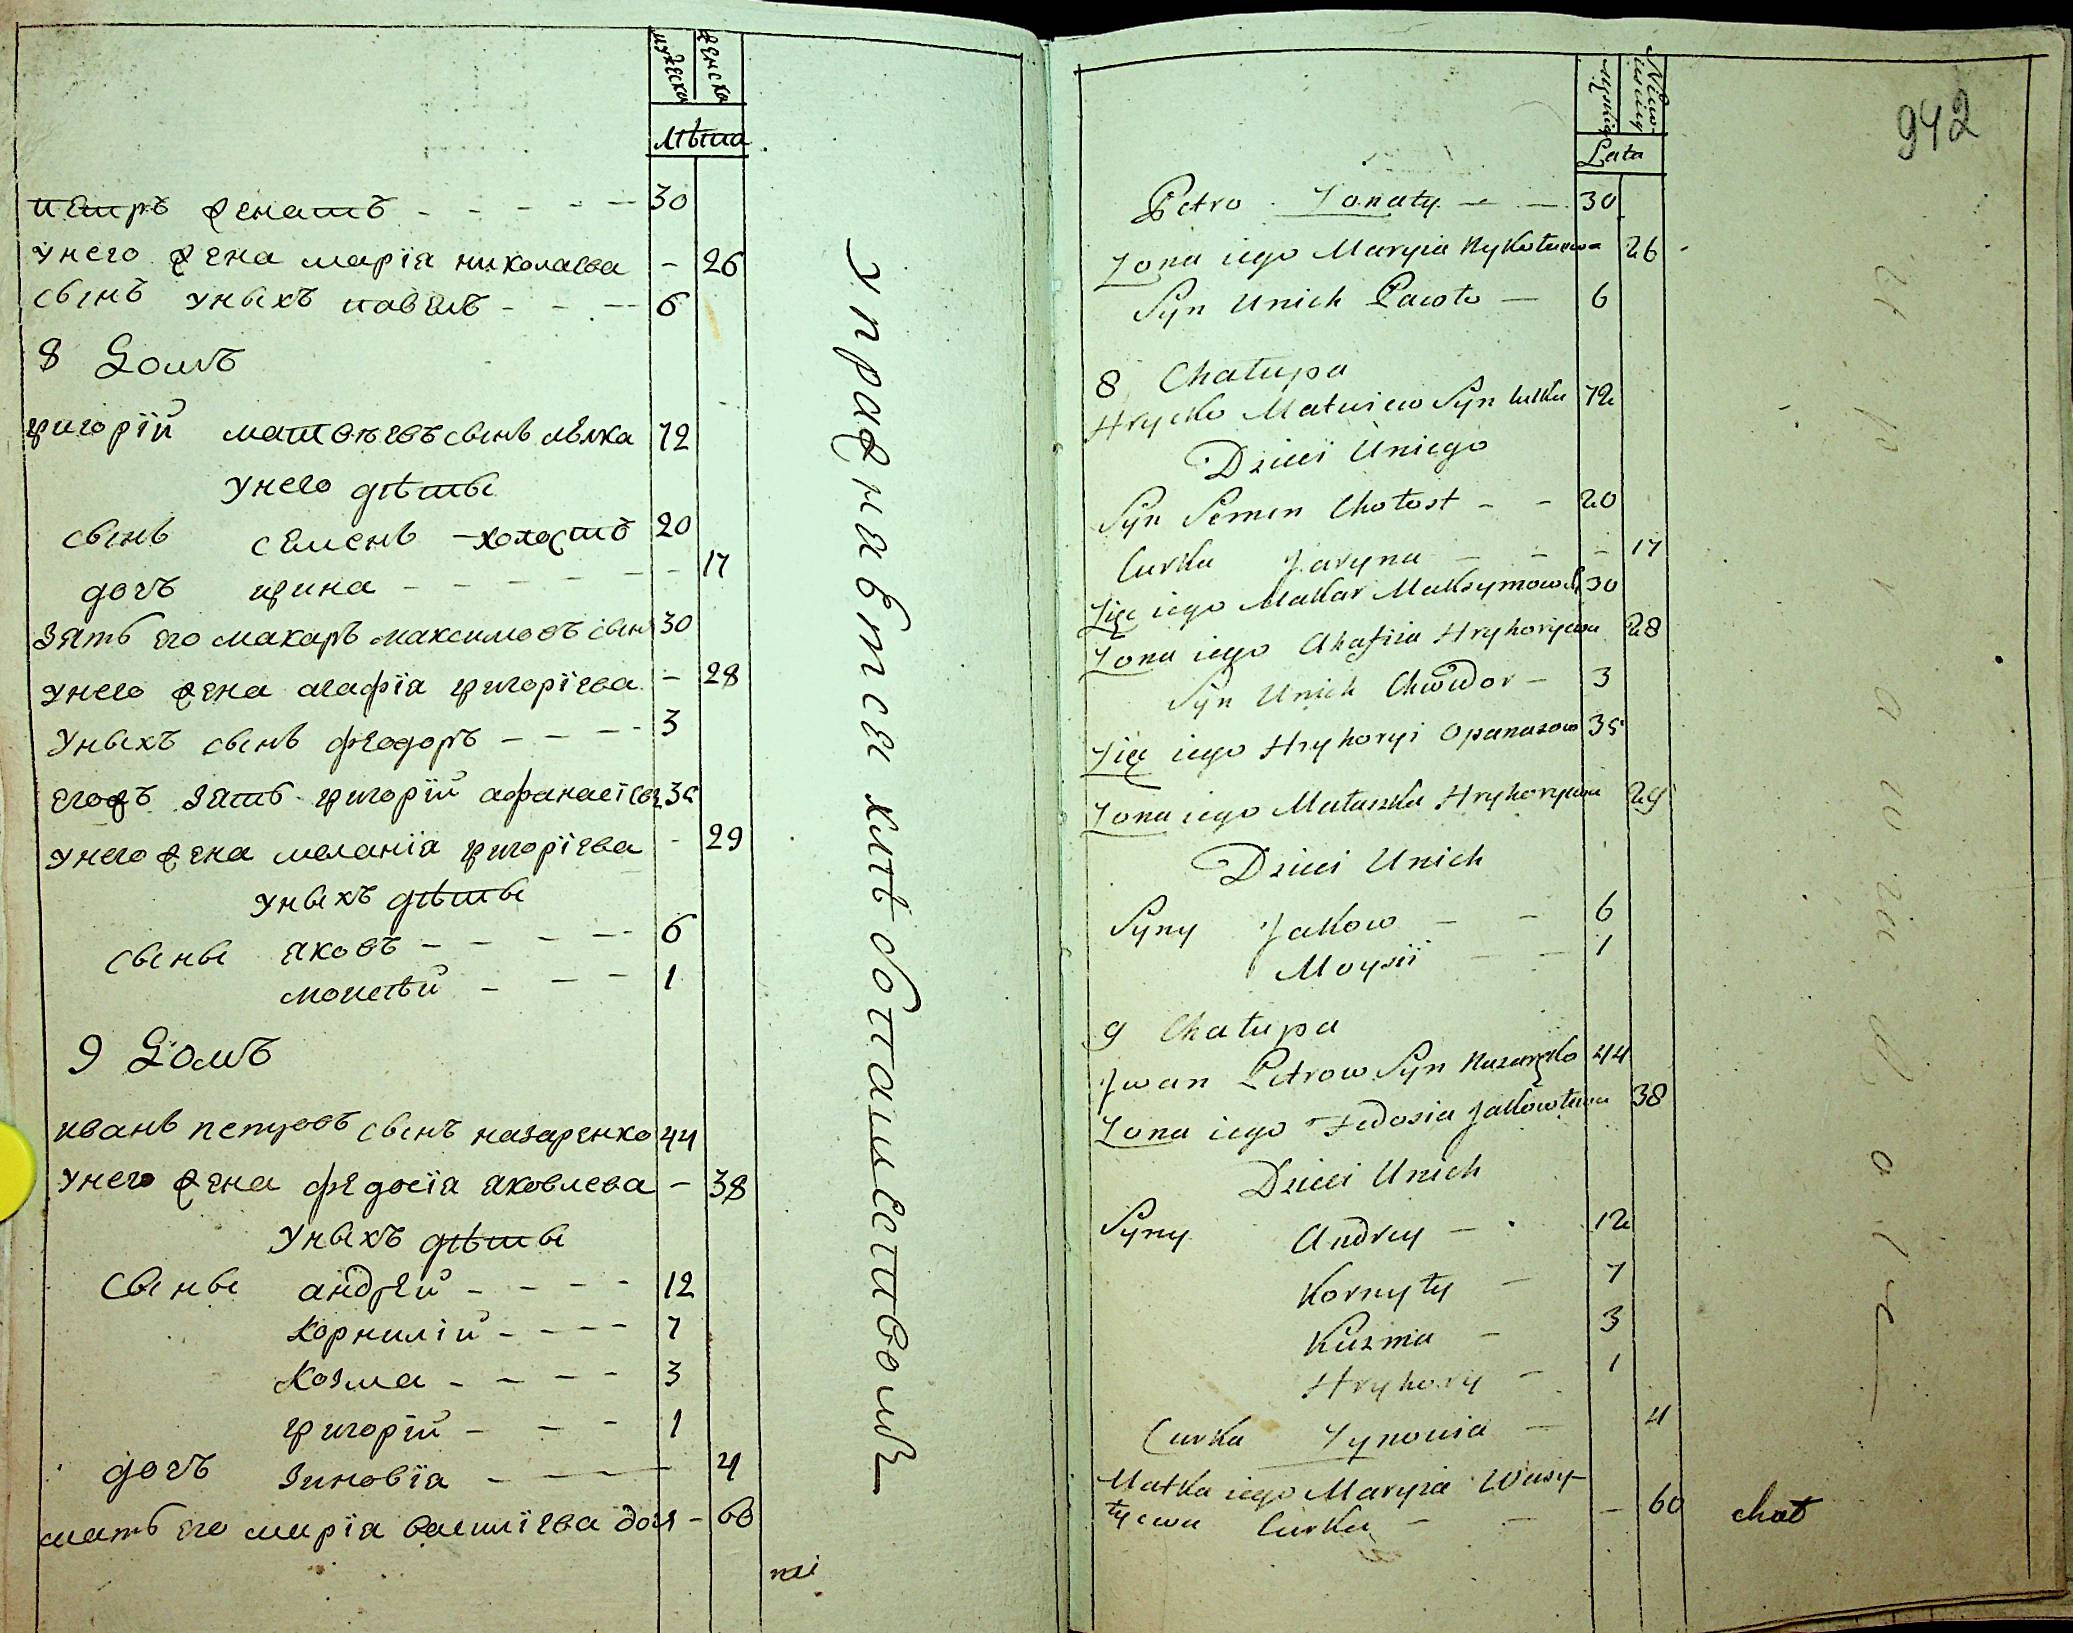 мужеска
женска
лѣта
петръ женатъ - - - - - 30
унего жена марїа николаева - 26
сынъ уныхъ павелъ - - - 6
8 Домъ
григорїй матвѣевъ сынъ лѣлка 72
унего дѣты
сынъ семенъ - холостъ 20
дочъ ирина - - - - - - - 17
Зять его макаръ максимовъ сынъ 30
унего жена агафїа григорїева - 28
Уныхъ сынъ феодоръ - - - - 3
егожъ зять григорїй афанасїевъ 35
унего жена меланїа григорїева - 29
уныхъ дѣты
сыны яковъ - - - - - 6
моисѣй - - - - 1
9 Домъ
иванъ петровъ сынъ назаренко 44
унего жена федосїа яковлева - 38
Уныхъ дѣты
Сыны андрей - - - - 12
Корнилїй - - - - 7
Козма - - - - 3
григорїй - - - 1
дочъ Зиновїа - - - - 4
мать его марїа василїева доч - 60
mi
Управнавется
942
Lata
Petro Zonaty - - 30
Zona iego Maryia Nykołaiewa 26
Syn Unich Pawło - 6
8 Chałupa
Hrycko Matwiew Syn 72
Dzieci Uniego
Syn Semen Chołost - - 20
Curka Jaryna - - - 17
Zięć iego Makar Maksymow S. 30
Zona iego Ahafiia Hryhorycwa 28
Syn Unich Chwedor - 3
Zięć iego Hryhoryi Opanasow 35
Zona iego Małaszka Hryhorycwa 29
Dzieci Unich
Syny Jakow - - 6
Moysii - - 1
9 Chałupa
Jwan Petrow Syn Nazareńko 44
Zona iego Fedosia Jakowłewa 38
Dzieci Unich
Syny Andrey - 12
Kornyły - 7
Kuzma - 3
Hryhory - 1
Curka Zynowia - 4
Matka iego Maryia Wasy-
łycwa Curka - - - 60
chał